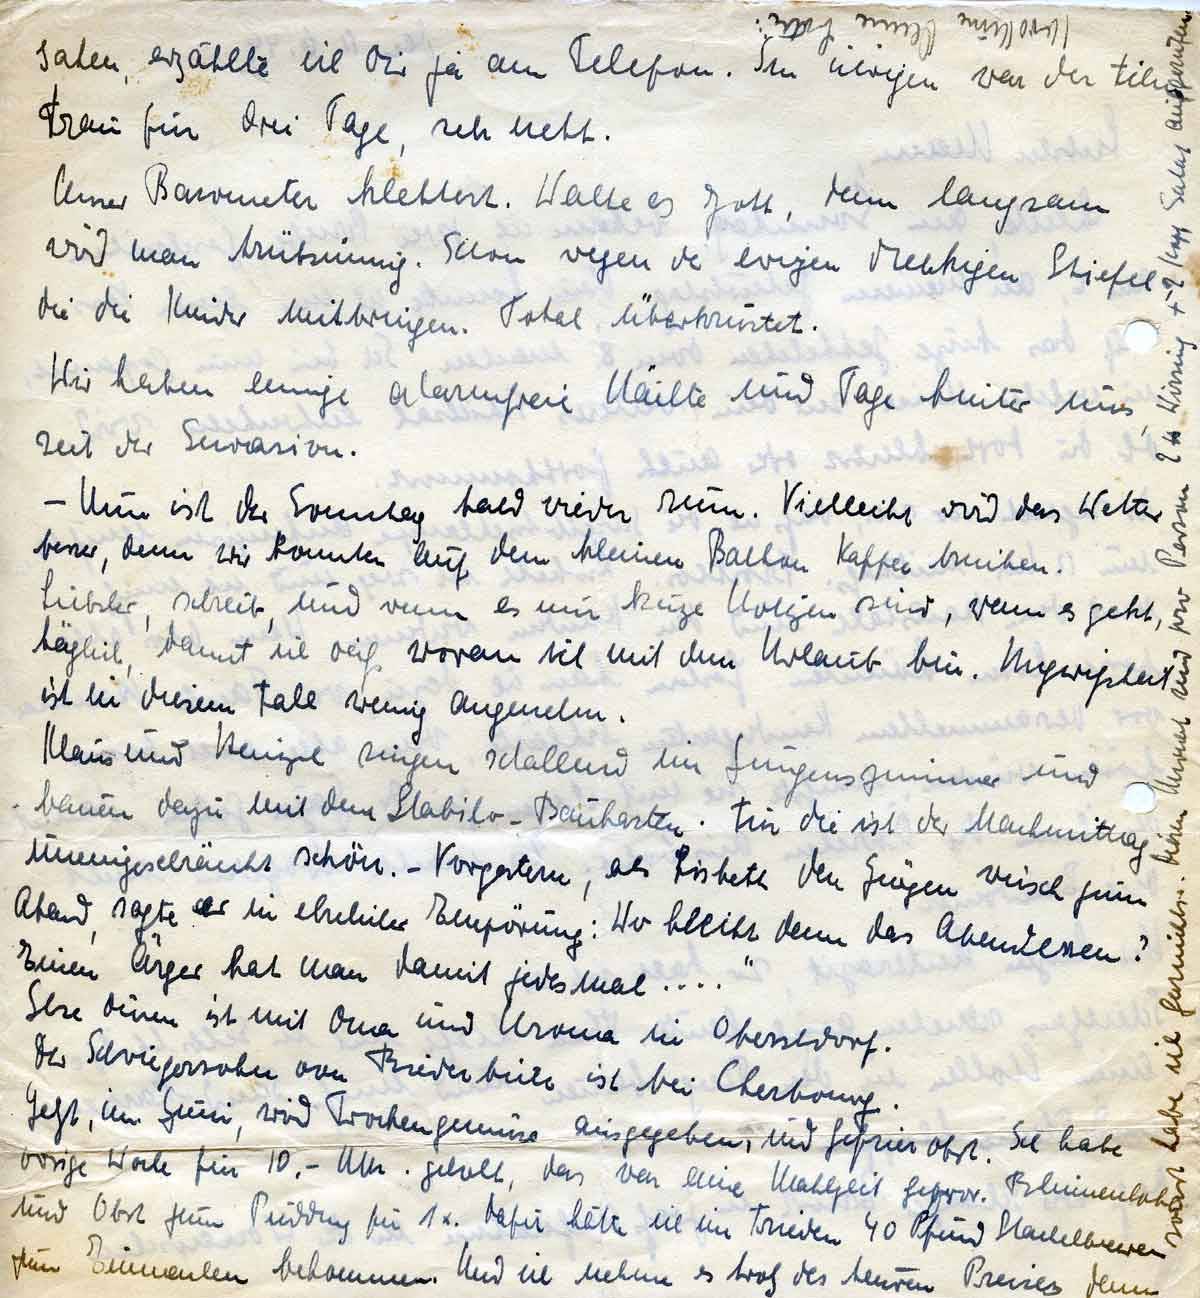 saten, erzählte ich Dir ja am Telefon. Im übrigen war der
Frau für drei Tage, sehr nett.
Unser Barometer klettert. Walte es Gott, denn langsam
wird man trübsinnig. Schon wegen der ewigen dreckigen Stiefel
die die Kinder mitbringen. Total überkrustet.
Wir haben einige alarmfreie Nächte und Tage hinter uns,
seit der Invasion.
– Nun ist der Sonntag bald wieder rum. Vielleicht wird das Wetter
besser, denn wir konnten auf dem kleinen Balkon Kaffee trinken.
Liebster, schreib, und wenn es nur kurze Notizen sind, wenn es geht,
täglich, damit ich weiß woran ich mit dem Urlaub bin. Ungewißheit
ist in diesem Falle wenig angenehm.
Klaus und singen schallend im Jungenszimmer und
bauen dazu mit dem Stabilo-Baukasten. Für die ist der Nachmittag
uneingeschränkt schön. – Vorgestern, als Lisbeth den Jürgen wusch zum
Abend, sagte er in ehrlicher Empörung: Wo bleibt denn das Abendessen?
Einen Ärger hat man damit jedesmal . . . ."
Ilse ist mit Oma und Uroma in Oberstdorf.
Der Schwiegersohn von ist bei Cherbourg.
Jetzt, im Juni, wird Trockengemüse ausgegeben, und Gefrierobst. Ich habe
vorige Woche für 10,- geholt, das war eine Mahlzeit Blumenkohl
und Obst zum Pudding für 1x. Dafür hätte ich im Frieden 40 Pfund Stachelbeeren
zum Einmachen bekommen. Und ich nehme es trotz des teuren Preises denn
sonst habe ich garnichts. Diesen Monat sind pro Person 2 Wirsing + 2 Salat